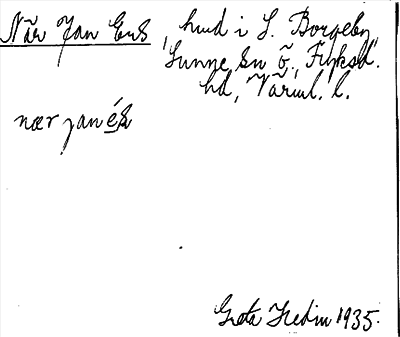 När Jan Ers, hmd i S. Borgeby,
Sunne sn ö, Fryksd.
hd, Värml. l.
nær janés
Greta Hedin 1935.